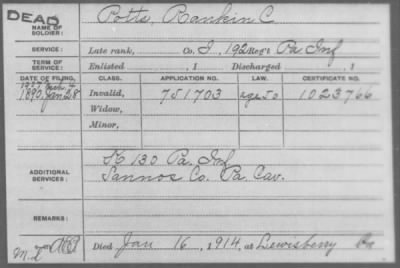 DEAD
NAME OF SOLDIER: Potts, Rankin C
SERVICE: Late rank, Co. I, 192 Reg't Pa Inf
TERM OF SERVICE: Enlisted , 1 Discharged , 1
DATE OF FILING. CLASS. APPLICATION NO. LAW. CERTIFICATE NO.
1890 Jan 28 Invalid, 751703 1023766
Widow,
Minor,
ADDITIONAL SERVICES: K 130 Pa. Inf
Co. Pa. Cav.
REMARKS:
Died Jan 16, 1914, at Lewisberry Pa